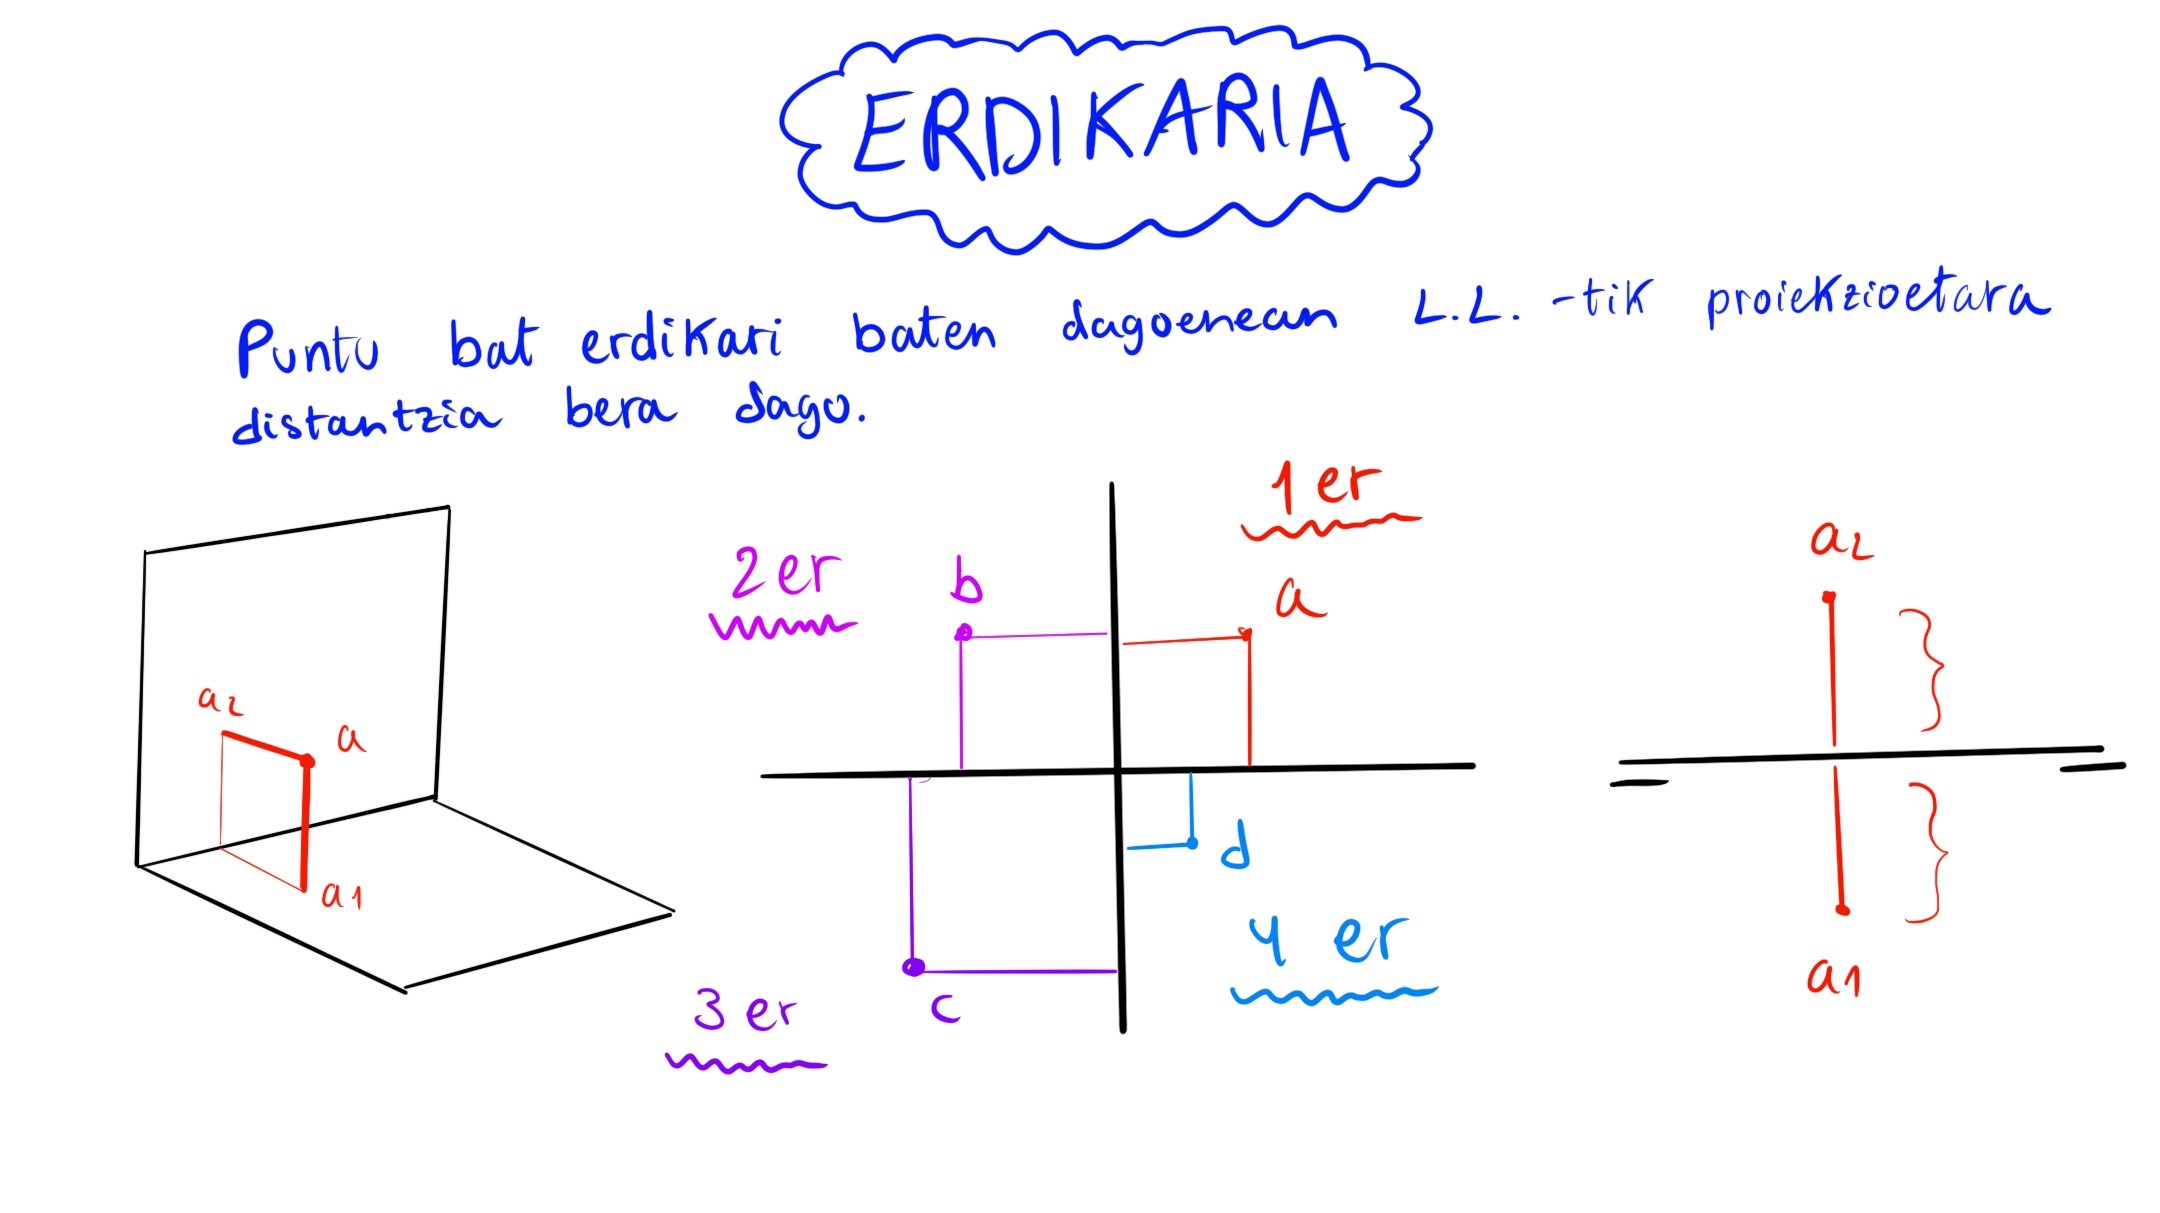 ERDIKARIA
Puntu bat erdikari baten dagoenean L.L. -tik proiekzioetara
distantzia bera dago.
1er
a2
2er
b
a
a2
a
a1
d
4 er
a1
3 er
c